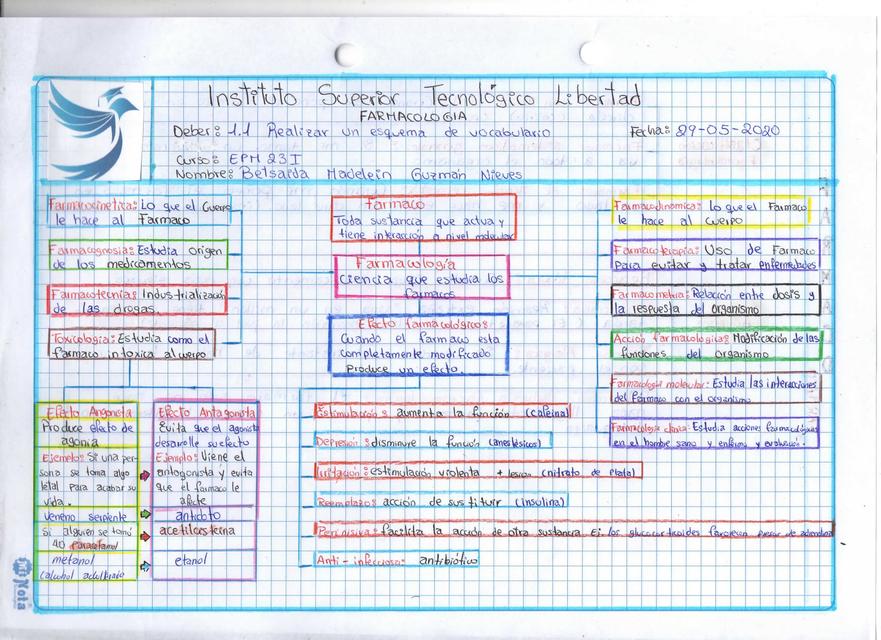 Instituto Superior Tecnológico Libertad
FARMACOLOGIA
Deber: 1.1 Realizar un esquema de vocabulario
Fecha: 29-05-2020
Curso: EPM 23 I
Nombre: Betsaida Madelein Guzmán Nieves
Farmacocinetica: Lo que el Cuerpo
le hace al Farmaco
Farmacognosia: Estudia origen
de los medicamentos
Farmacotecnias: Industrialización
de las drogas.
Toxicologia: Estudia como el
farmaco intoxica al cuerpo
Farmaco
Toda sustancia que actua y
tiene interacción a nivel molecular
Farmacología
Ciencia que estudia los
farmacos
Efecto farmacológicos:
Cuando el farmaco esta
completamente modificado
Produce un efecto.
Farmacodinamica: lo que el Farmaco
le hace al cuerpo
Farmacoterapia: Uso de Farmaco
Para evitar y tratar enfermedades
Farmacometria: Relación entre dosis y
la respuesta del organismo
Acción farmacologica: Modificación de las
funciones del organismo
Farmacologia molecular: Estudia las interacciones
del Farmaco con el organismo
Farmacologia clinica: Estudia acciones farmacológicas
en el hombre sano y enfermo y evaluación.
Efecto Angonista
Produce efecto de
agonia
Ejemplo: Si una per-
sona se toma algo
letal para acabar su
vida.
veneno serpiente
Si alguien se tomó
40 Paracetamol
metanol
(alcohol adulterado
Efecto Antagonista
Evita que el agonista
desarolle su efecto
Ejemplo: Viene el
antogonista y evita
que el farmaco le
afecte
antidoto
acetilcisteina
etanol
Estimulación: aumenta la función (cafeina)
Depresion: disminuye la función (anestésicos)
Irritación: estimulación violenta + lesión (nitrato de plata)
Reemplazo: acción de sustituir (insulina)
facilita la acción de otra sustancia Ej. los glucocorticoides favorecen
Anti-infeccioso: antibiótico
Nota